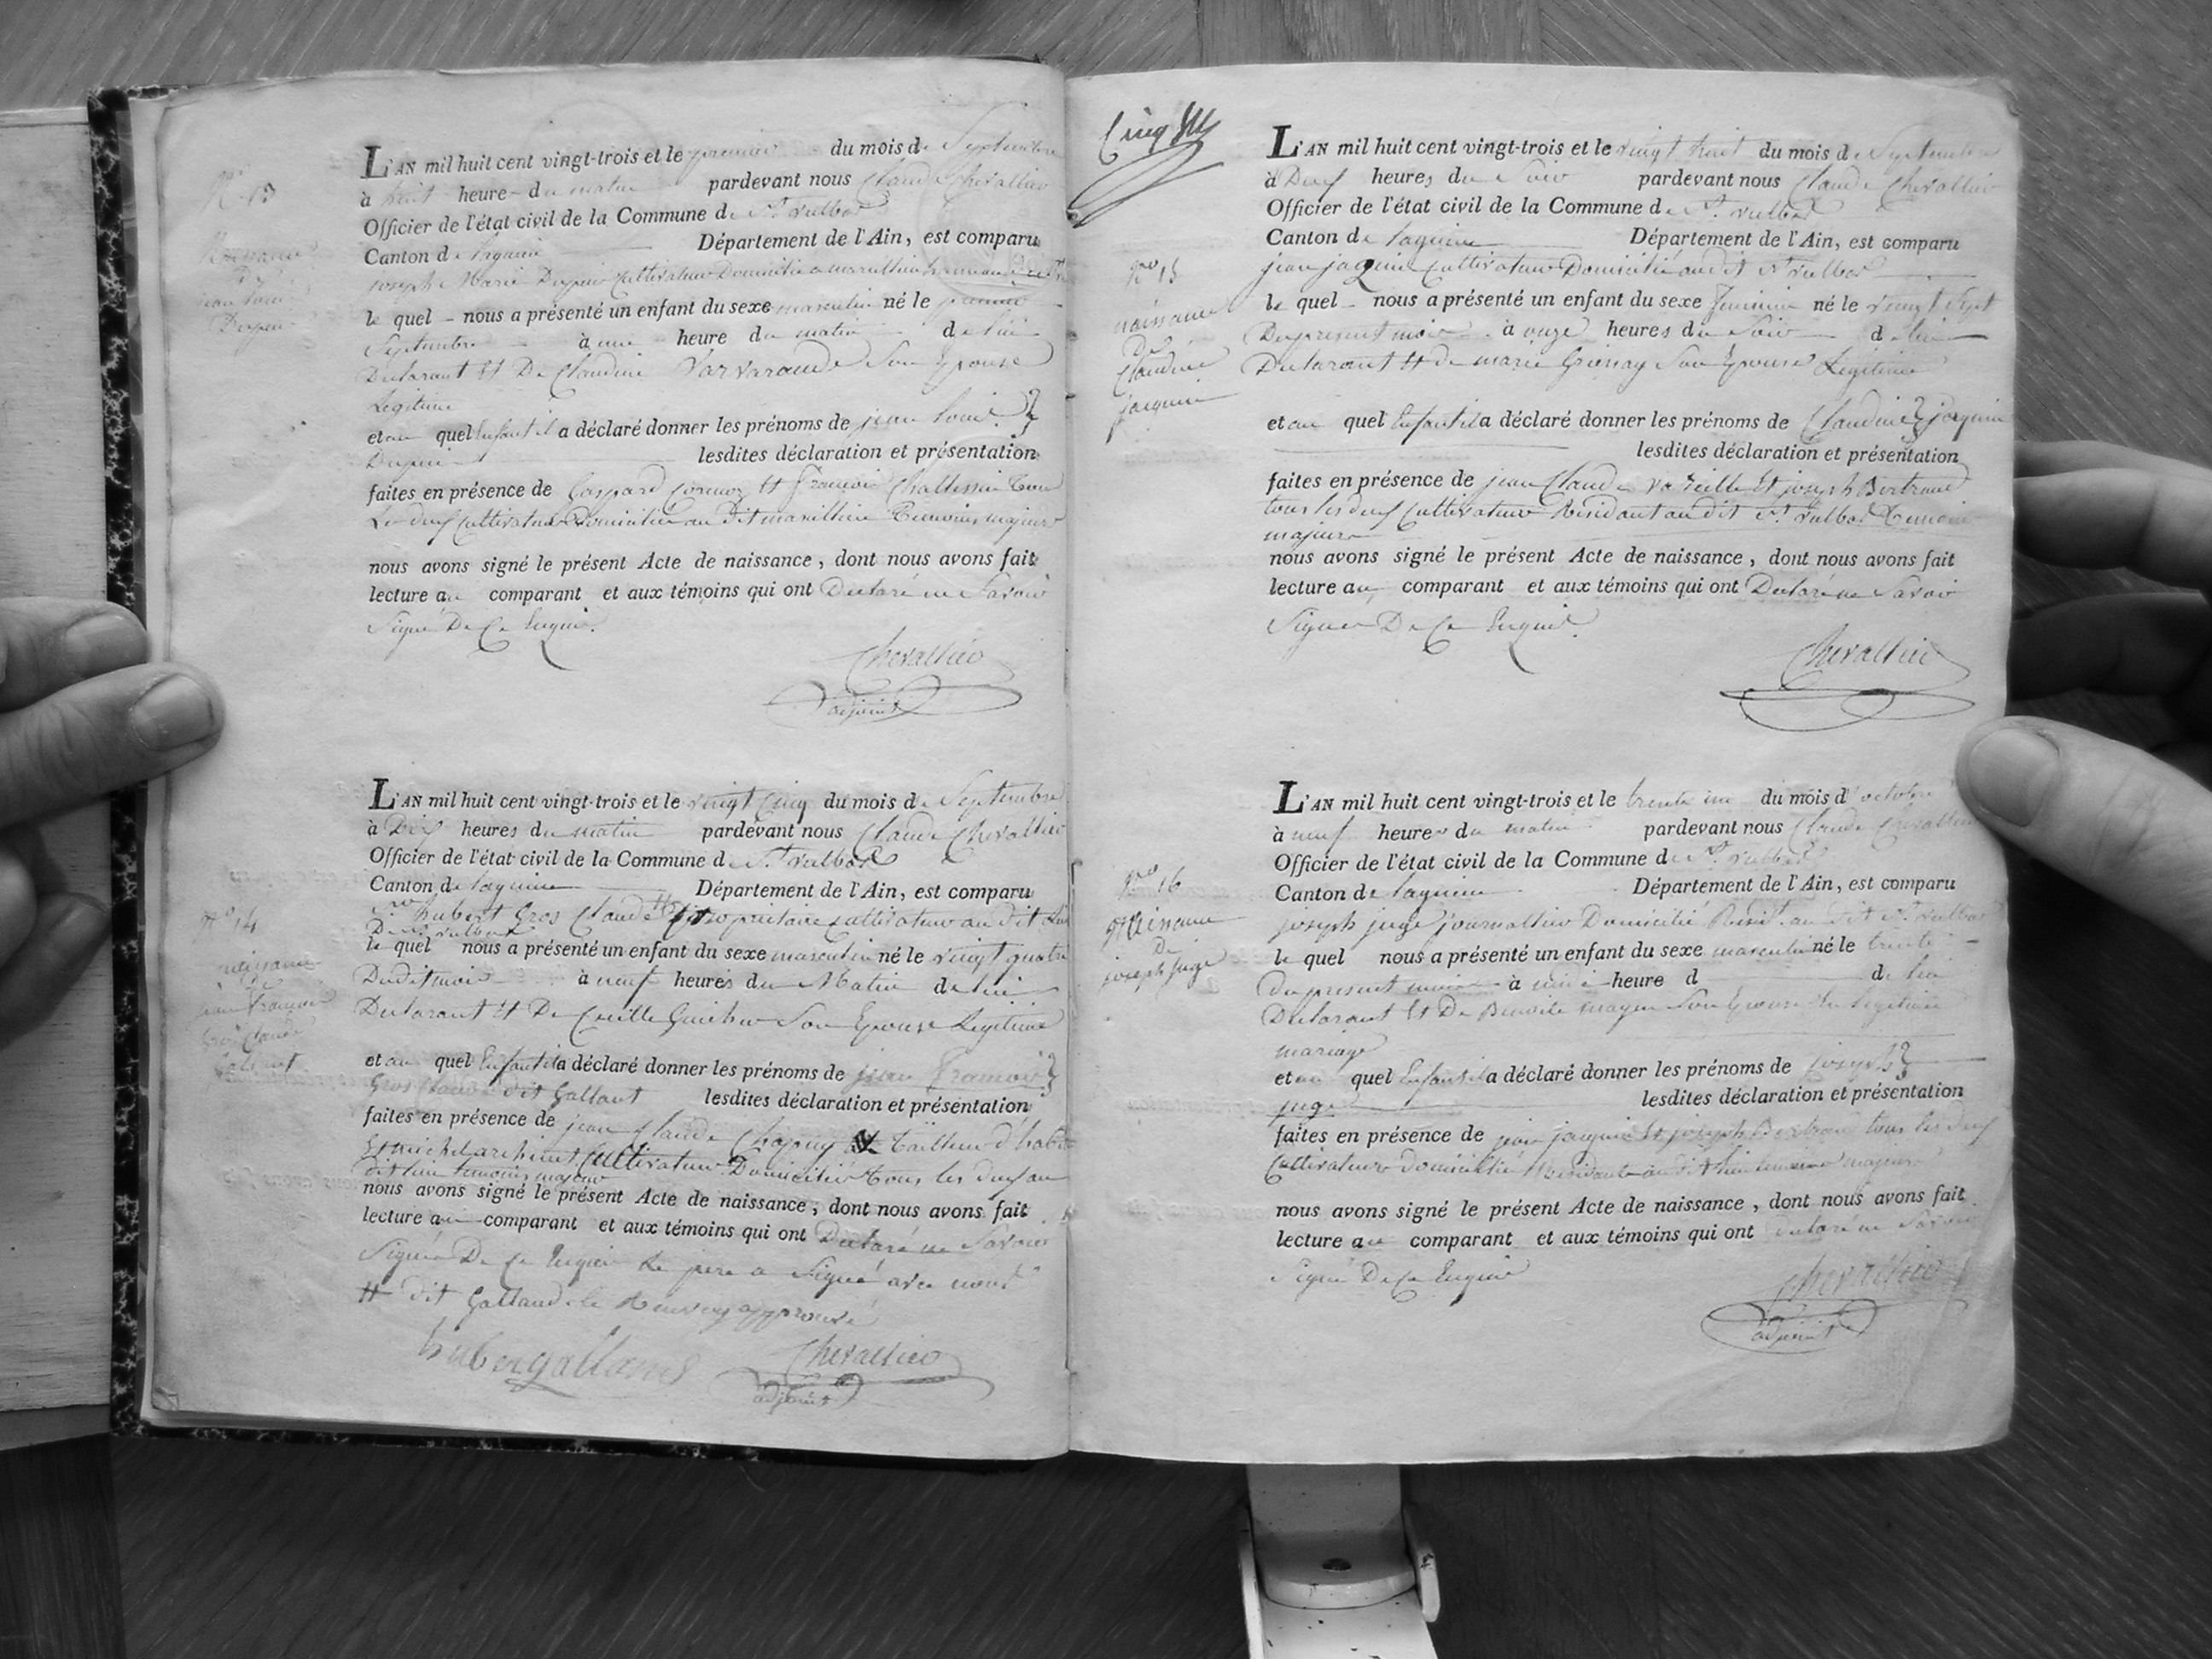 N° 13
jean Louis
Dupui
L'AN mil huit cent vingt-trois et le premier du mois de Septembre
à huit heure du matin pardevant nous Claude Chevallier
Officier de l'état civil de la Commune de St. Vulbas
Canton de Lagnieu Département de l'Ain, est comparu
joseph Marie Dupui Cultivateur Domicilié a marcillieu hameau de
le quel nous a présenté un enfant du sexe masculin né le premier
Septembre à une heure du matin de lui
Declarant et De Claudine Varvarande Son Epouse
Legitime
et au quel Enfant il a déclaré donner les prénoms de jean Louis
Dupui lesdites déclaration et présentation
faites en présence de Gaspard Cormoz et François Tous
Les deux Cultivateur Domicilié au dit marcillieu Temoins majeurs
nous avons signé le présent Acte de naissance, dont nous avons fait
lecture au comparant et aux témoins qui ont Declaré ne Savoir
Signé De Ce Enquis.
Chevallier
adjoint
N° 14
naissance
de
jean François
Gros Claude
Gallant
L'AN mil huit cent vingt-trois et le vingt Cinq du mois de Septembre
à Dix heures du matin pardevant nous Claude Chevallier
Officier de l'état civil de la Commune de St. Vulbas
Canton de Lagnieu Département de l'Ain, est comparu
hubert Gros Claude # propriétaire cultivateur au dit lieu
De St. Vulbas
le quel nous a présenté un enfant du sexe masculin né le vingt quatre
Dudit mois à neuf heures du Matin de lui
Declarant et De Guicher Son Epouse Legitime
et au quel Enfant il a déclaré donner les prénoms de jean François
Gros Claude dit Gallant lesdites déclaration et présentation
faites en présence de jean Claude Chapuy Tailleur d'habit
Et michel Cultivateur Domicilié Tous les deux au
dit lieu temoins majeur
nous avons signé le présent Acte de naissance, dont nous avons fait
lecture au comparant et aux témoins qui ont Declaré ne Savoir
Signé De Ce Enquis Le père a Signé avec nous
# dit Galland le Renvoy approuvé
huber gallans
Chevallier
adjoint
Cinq
N° 15
naissance
De
Claudine
jaquin
L'AN mil huit cent vingt-trois et le vingt huit du mois de Septembre
à Deux heures du Soir pardevant nous Claude Chevallier
Officier de l'état civil de la Commune de St. Vulbas
Canton de Lagnieu Département de l'Ain, est comparu
jean jaquin Cultivateur Domicilié au dit St. Vulbas
le quel nous a présenté un enfant du sexe Feminin né le vingt Sept
Du present mois à onze heures du Soir de lui
Declarant et de marie Son Epouse Legitime
et au quel Enfant il a déclaré donner les prénoms de Claudine jaquin
lesdites déclaration et présentation
faites en présence de jean Claude Et joseph Bertrand
tous les deux Cultivateur Residant au dit St. Vulbas Temoins
majeurs
nous avons signé le présent Acte de naissance, dont nous avons fait
lecture au comparant et aux témoins qui ont Declaré ne Savoir
Signer De Ce Enquis.
Chevallier
N° 16
Naissance
De
joseph juge
L'AN mil huit cent vingt-trois et le trente un du mois d'octobre
à neuf heures du matin pardevant nous Claude Chevallier
Officier de l'état civil de la Commune de St. Vulbas
Canton de Lagnieu Département de l'Ain, est comparu
joseph juge journallier Domicilié au dit St. Vulbas
le quel nous a présenté un enfant du sexe masculin né le trente
Du present mois à heure d de lui
Declarant Et De Benoite Son Epouse En legitime
mariage
et au quel Enfant il a déclaré donner les prénoms de joseph
juge lesdites déclaration et présentation
faites en présence de jean jaquin Et joseph Bertrand tous les deux
Cultivateurs domicilié Residant au dit lieu temoins majeurs
nous avons signé le présent Acte de naissance, dont nous avons fait
lecture au comparant et aux témoins qui ont declaré ne Savoir
Signé De Ce Enquis
Chevallier
adjoint